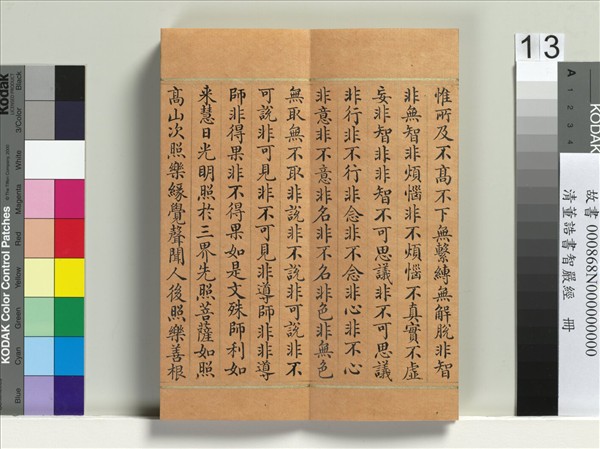 惟所及不髙不下無繫縛無解脫非智
非無智非煩惱非不煩惱不真實不虛
妄非智非非智不可思議非不可思議
非行非不行非念非不念非心非不心
非意非不意非名非不名非色非無色
無取無不取非說非不說非可說非不
可說非可見非不可見非導師非非導
師非得果非不得果如是文殊師利如
来慧日光明照於三界先照菩薩如照
髙山次照樂緣覺聲聞人後照樂善根
13
A 1 2 3 4
KODAK
故書 000868N000000000
清董誥書智嚴經 冊
Kodak
KODAK Color Control Patches
Blue Cyan Green Yellow Red Magenta White 3/Color Black